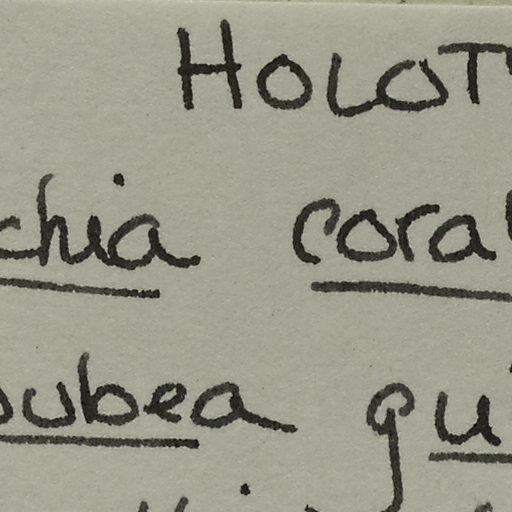 HOLOT
chia coral
oubea gui